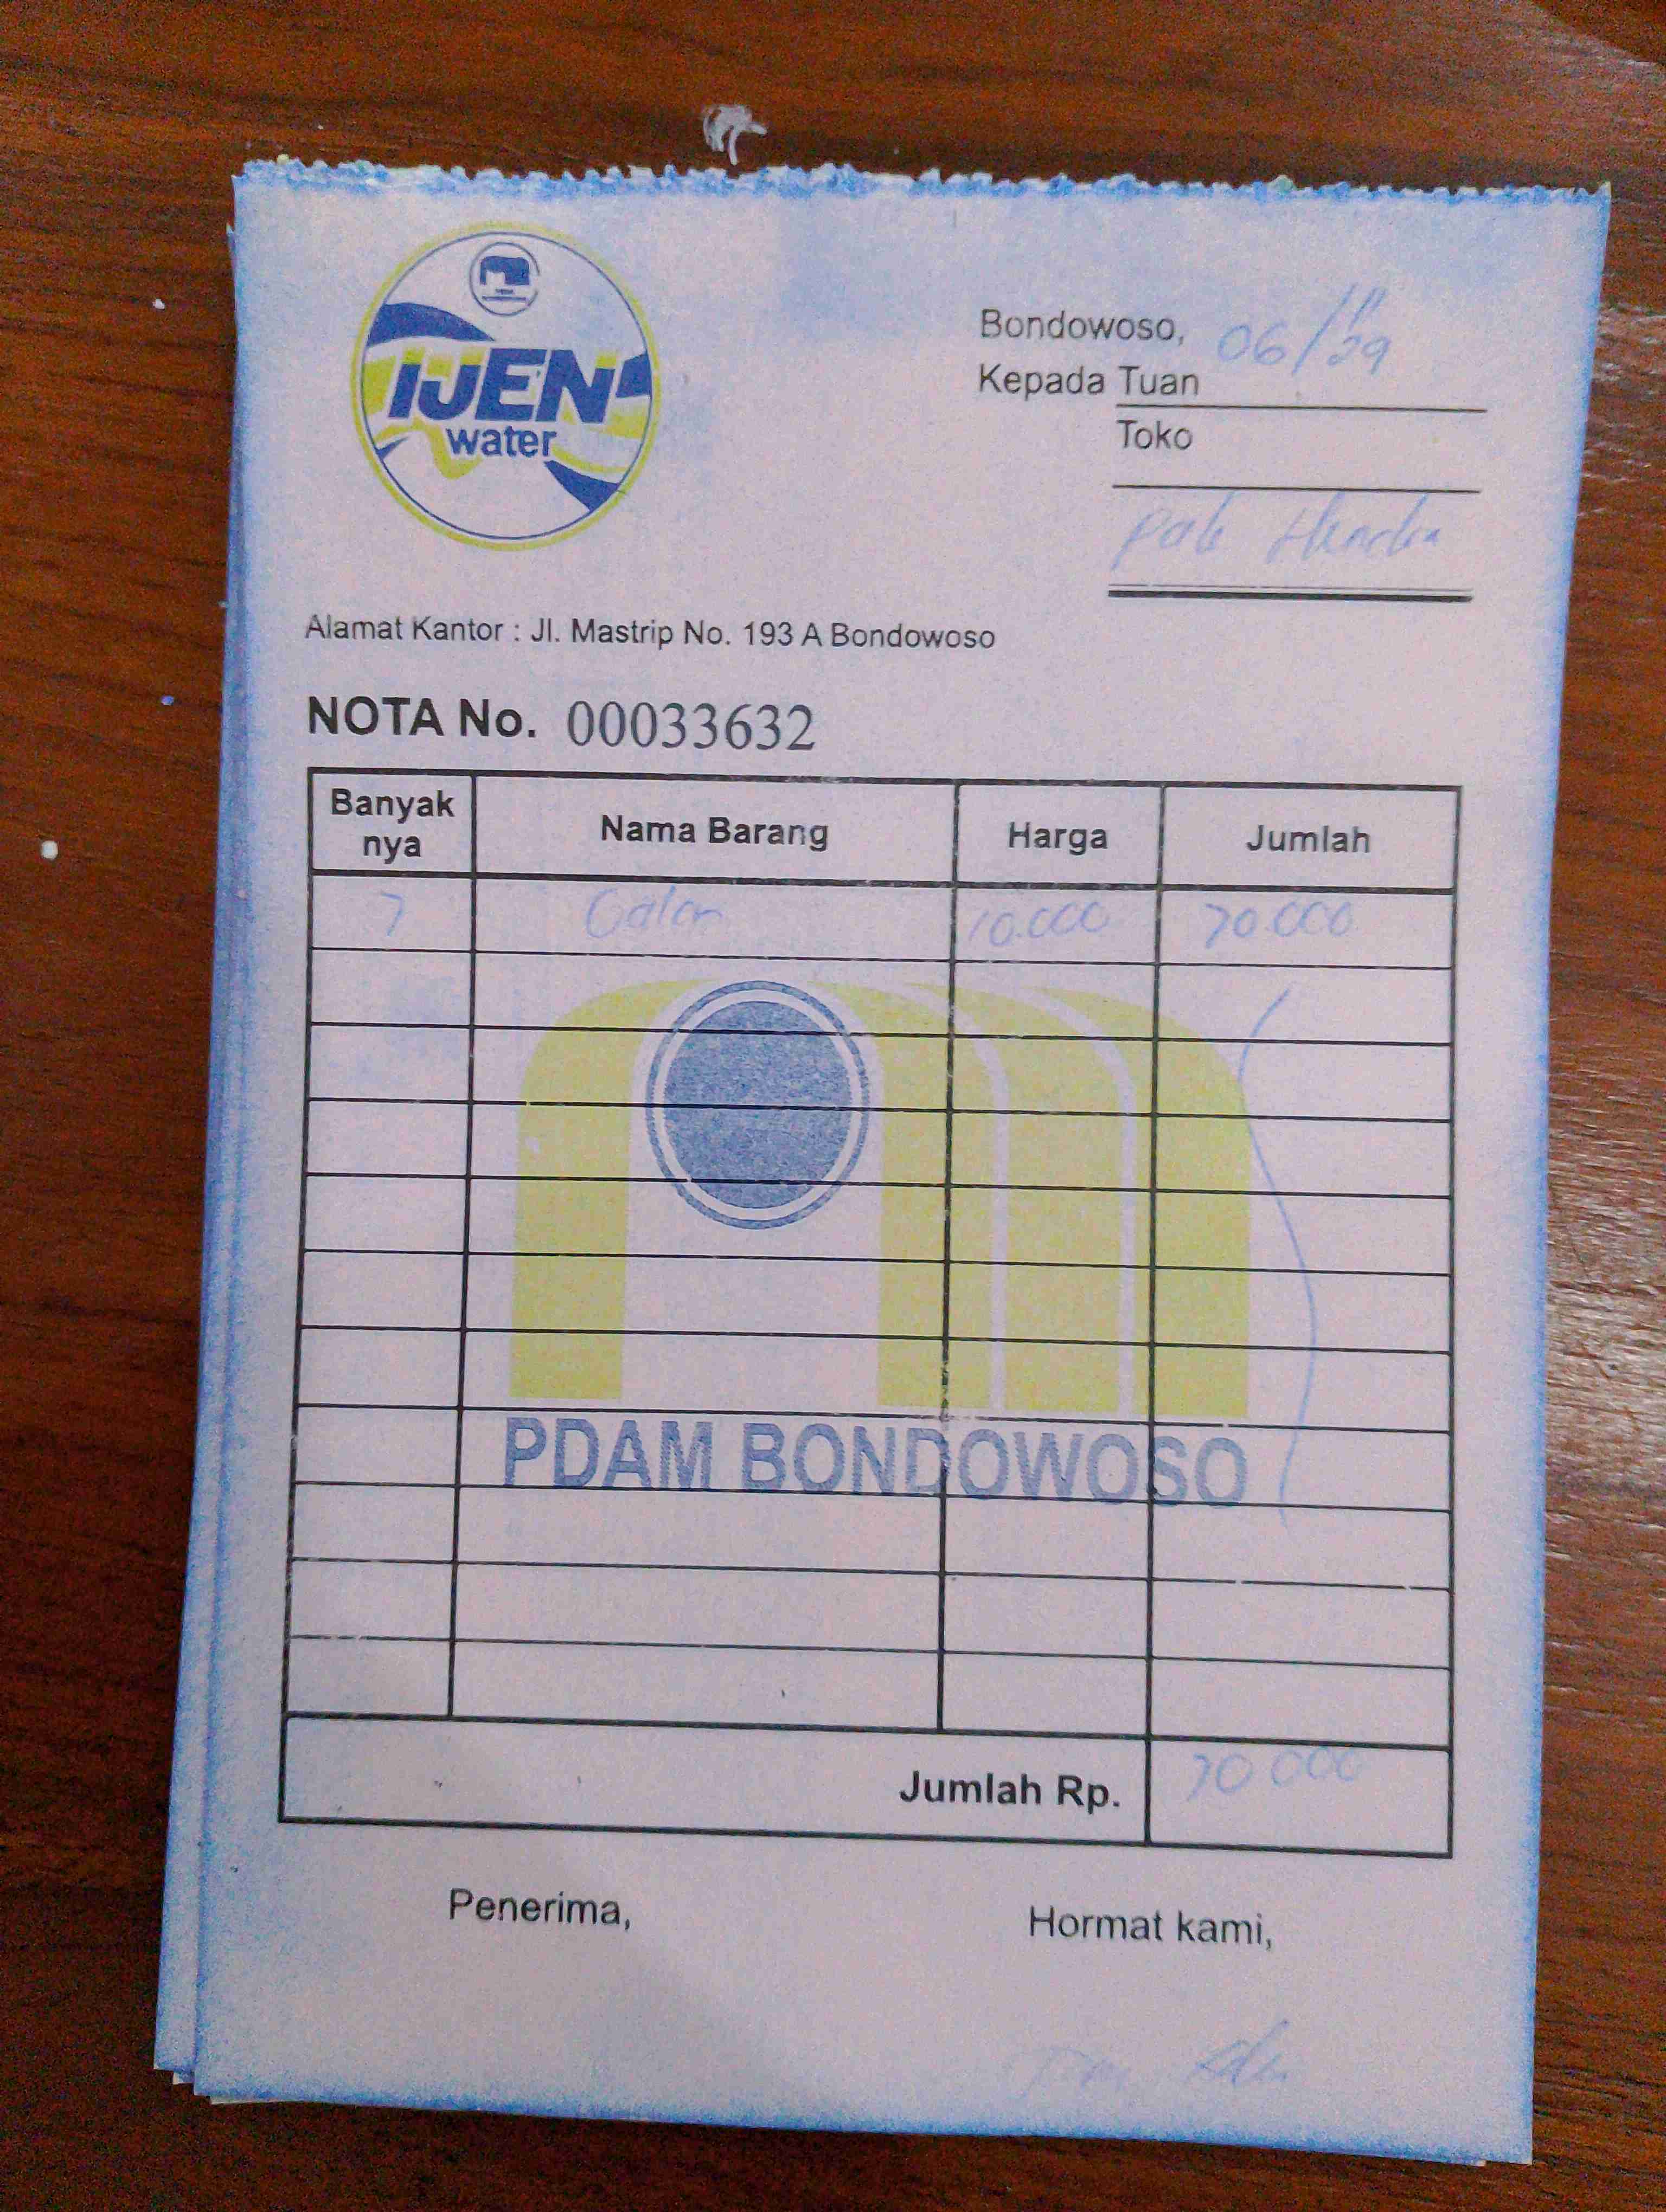 IJEN
water
Bondowoso, 06/11
Kepada Tuan
Toko
Pak Hendra
Alamat Kantor : Jl. Mastrip No. 193 A Bondowoso
NOTA No. 00033632
Banyak nya Nama Barang Harga Jumlah
7 Galon 10.000 70.000
PDAM BONDOWOSO
Jumlah Rp. 70 000
Penerima, Hormat kami,